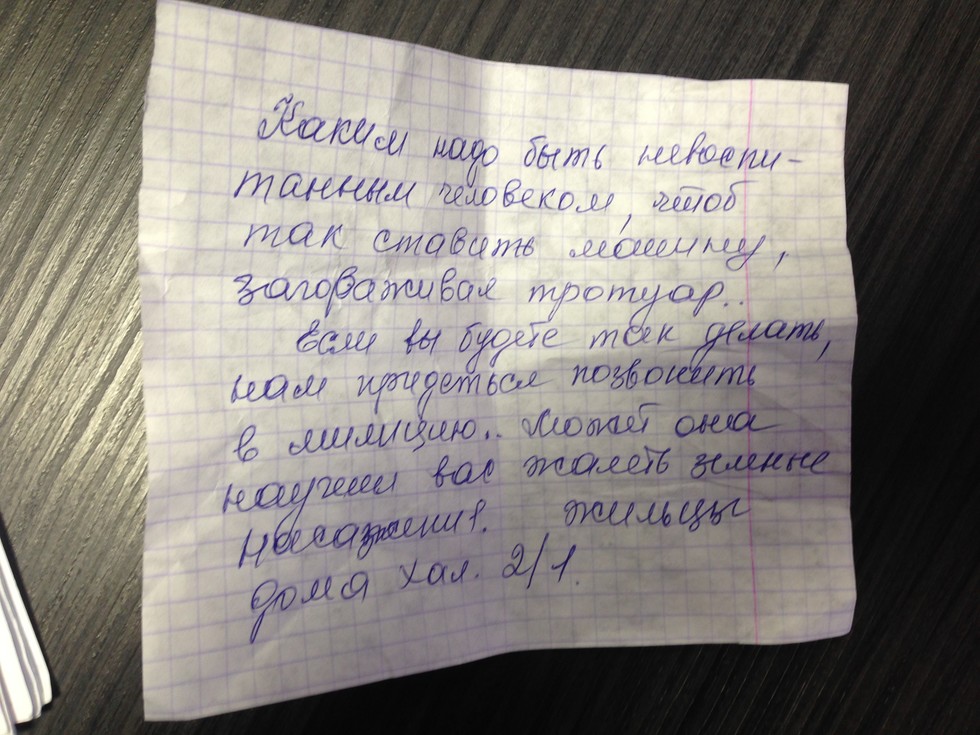 Каким надо быть невоспи-
танным человеком, чтоб
так ставить машину,
загораживая тротуар..
Если вы будете так делать,
нам придеться позвонить
в милицию.. Может она
научит вас жалеть
насажения. жильцы
дома хал. 2/1.